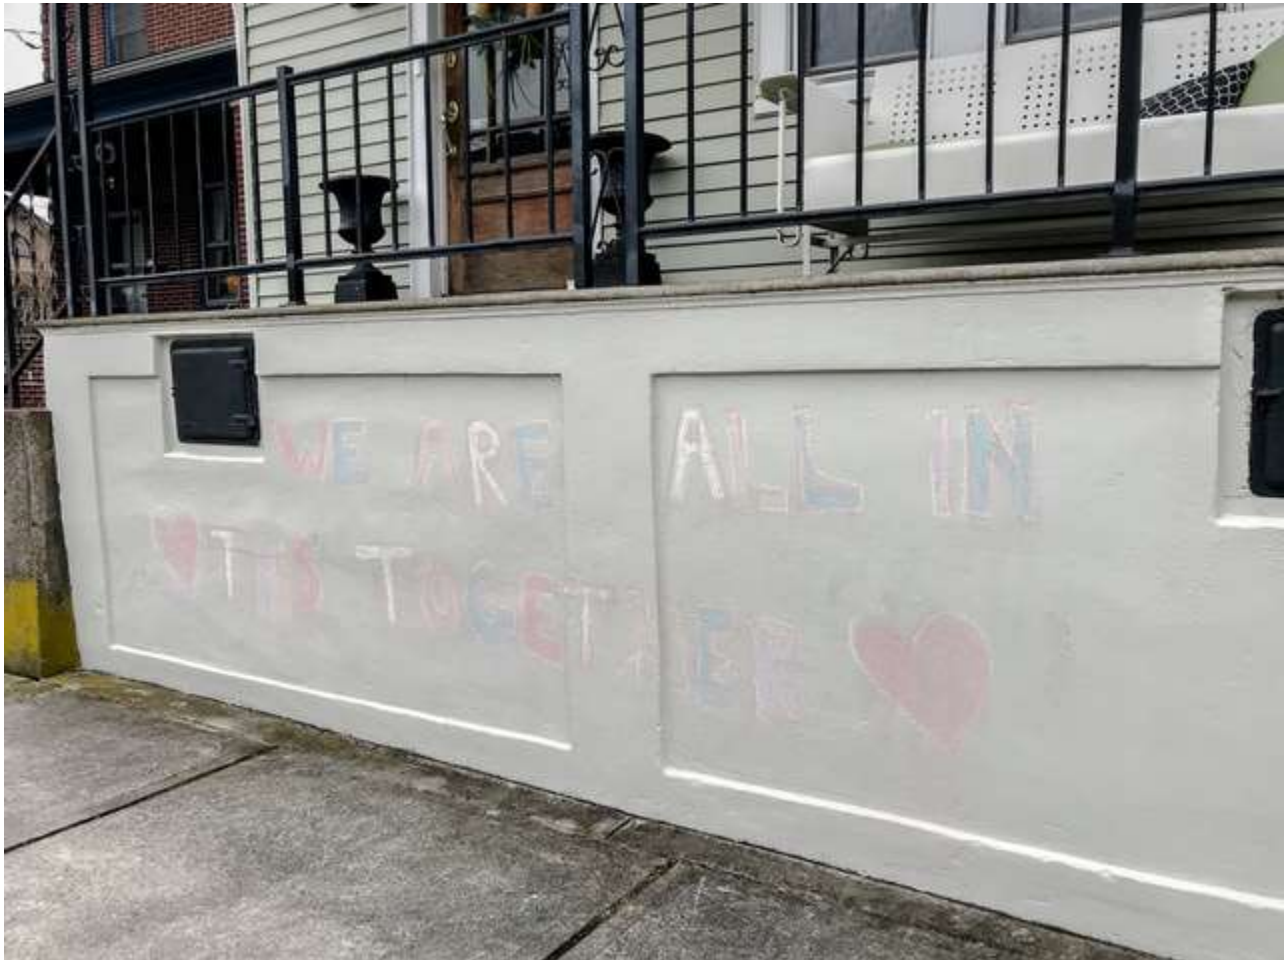 WE ARE ALL IN
THIS TOGETHER